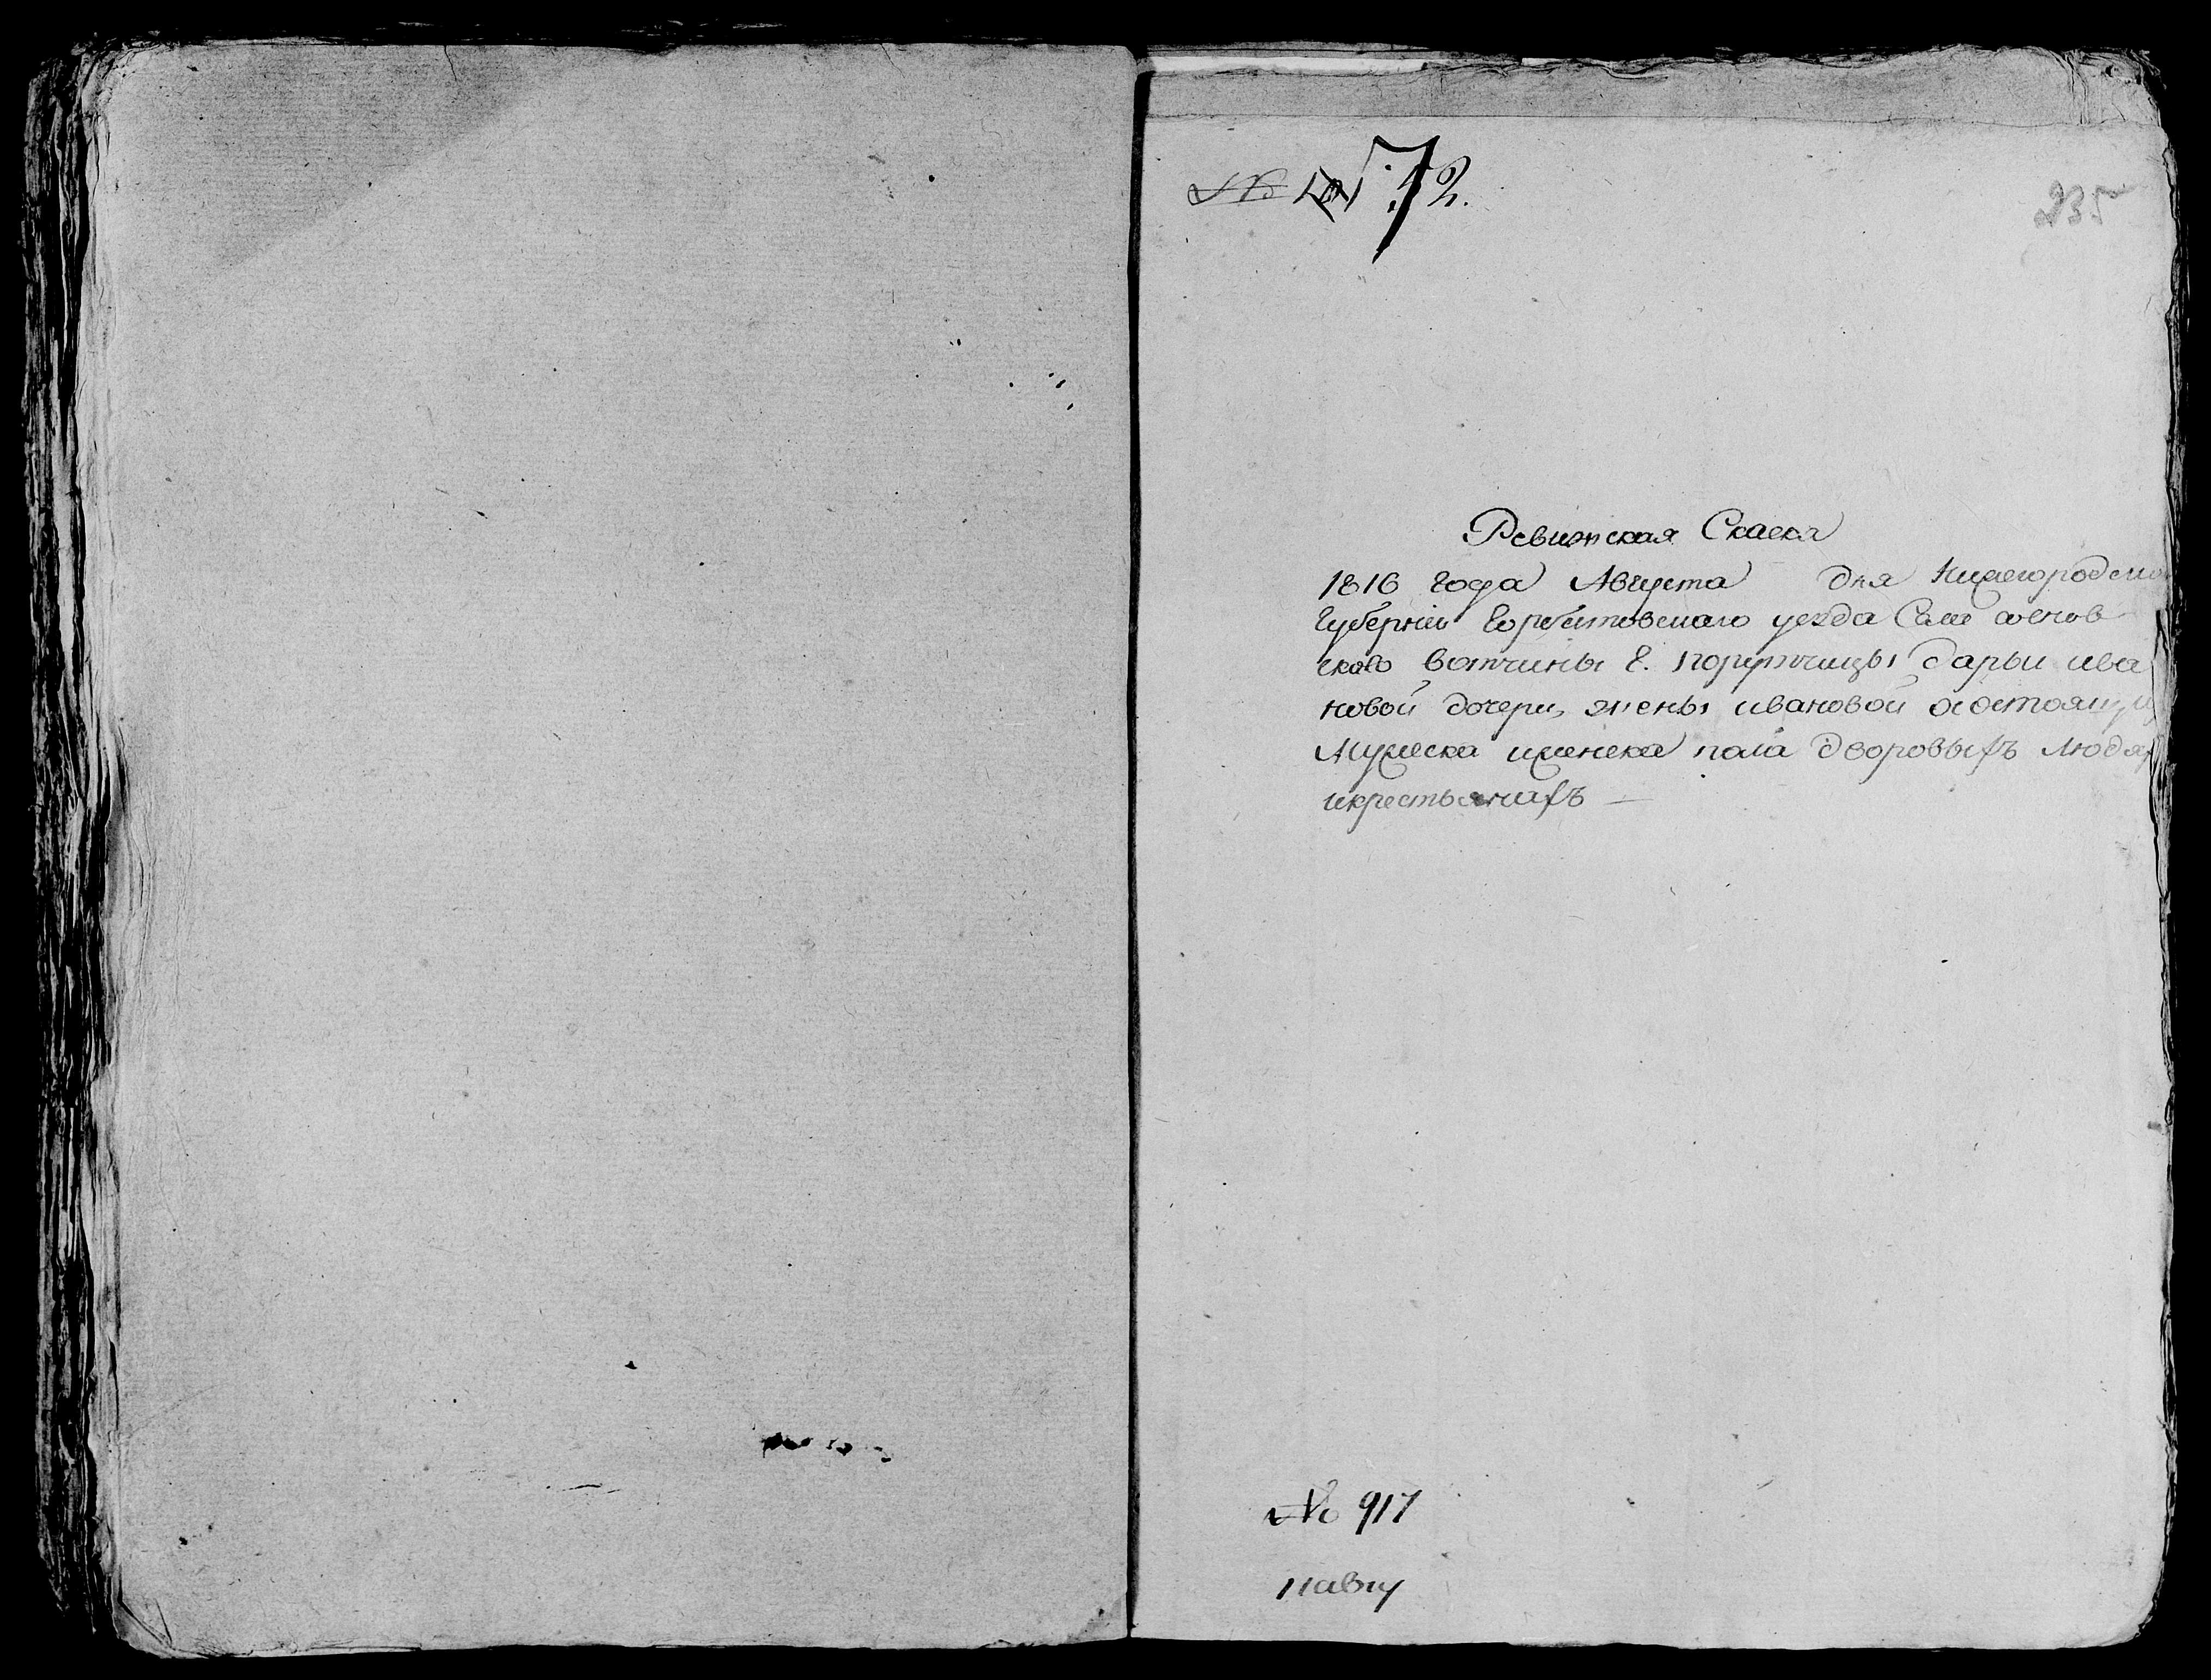 72.
235
Ревижская Скаска
1816 года Августа дня Нижегородско
Губернии Горбатовскаго уезда Села соснов
скаго вотчины Г. порутчицы дарьи ива
новой дочери, жены ивановой осостоящи
Мужеска иженска пола дворовыхъ людях
икрестьянахъ —
№ 917
11 авгу